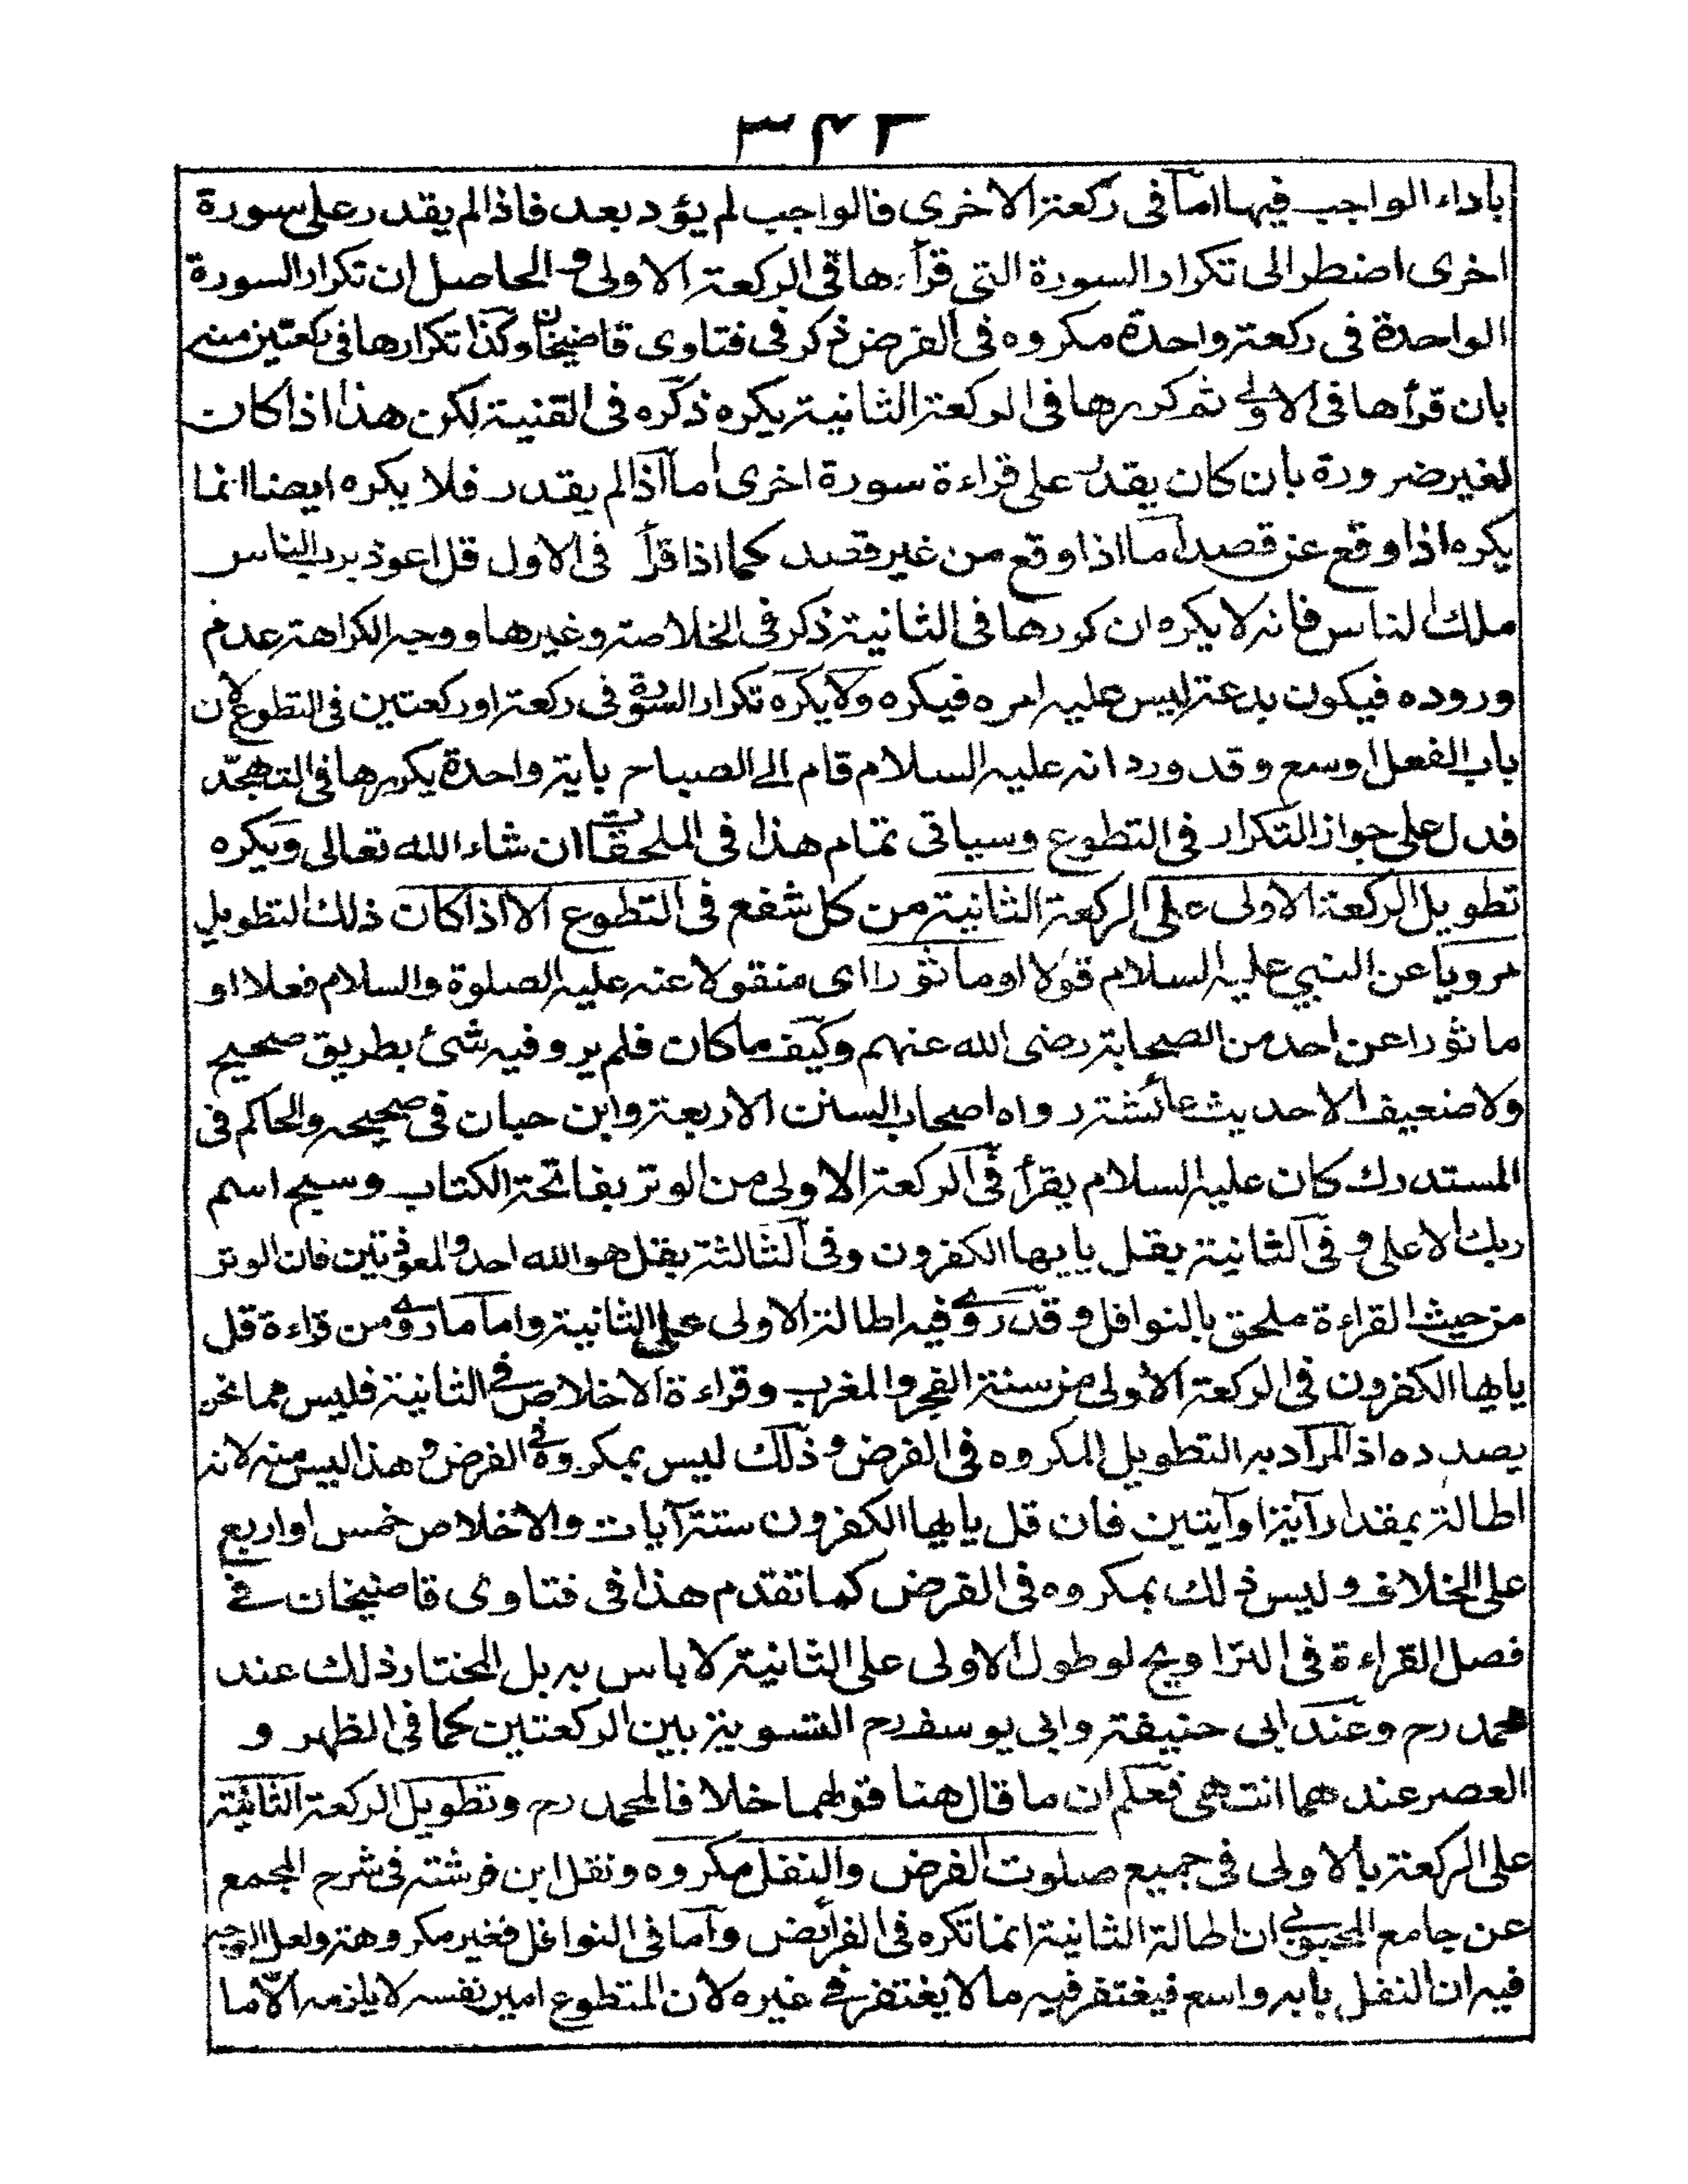 ٣٤٢
بأداء الواجب فيها اما فى ركعة الاخرى فالواجب لم يؤد بعد فاذا لم يقدر على سورة
اخرى اضطر الى تكرار السورة التى قرأءها فى الركعة الاولى و الحاصل ان تكرار السورة
الواحدة فى ركعة واحدة مكروه فى الفرض ذكر فى فتاوى قاضيخان وكذا تكرارها فى ركعتين منه
بان قرأها فى الاولى ثم كررها فى الركعة الثانية يكره ذكره فى القنية لكن هذا اذا كان
لغير ضرورة بان كان يقدر على قراءة سورة اخرى اما اذا لم يقدر فلا يكره ايضا انما
يكره اذا وقع عن قصد اما اذا وقع من غير قصد كما اذا قرأ فى الاول قل اعوذ برب الناس
ملك الناس فانه لا يكره ان كررها فى الثانية ذكر فى الخلاصة وغيرها ووجه الكراهة عدم
وروده فيكون بدعة ليس عليه امره فيكره ولا يكره تكرار السورة فى ركعة او ركعتين فى التطوع لان
باب الفعل اوسع وقد ورد انه عليه السلام قام الى الصباح باية واحدة يكررها فى التهجد
فدل على جواز التكرار فى التطوع وسياتى تمام هذا فى الملحقات ان شاء الله تعالى ويكره
تطويل الركعة الاولى على الركعة الثانية من كل شفع فى التطوع الا اذا كان ذلك التطويل
مرويا عن النبي عليه السلام قولا او ماثورا اى منقولا عنه عليه الصلوة والسلام فعلا او
ماثورا عن احد من الصحابة رضى الله عنهم وكيف ما كان فلم يرو فيه شئ بطريق صحيح
ولا ضعيف الا حديث عائشة رواه اصحاب السنن الاربعة وابن حبان فى صحيحه والحاكم فى
المستدرك كان عليه السلام يقرأ فى الركعة الاولى من الوتر بفاتحة الكتاب وسبح اسم
ربك الاعلى و فى الثانية بقل يايها الكفرون وفى الثالثة بقل هو الله احد والمعوذتين فان الوتر
من حيث القراءة ملحق بالنوافل و قد روى فيه اطالة الاولى على الثانية واما ما روى من قراءة قل
يايها الكفرون فى الركعة الاولى من سنة الفجر والمغرب وقراءة الاخلاص فى الثانية فليس مما نحن
بصدده اذ المراد به التطويل المكروه فى الفرض و ذلك ليس بمكروه فى الفرض و هذا ليس منه لانه
اطالة بمقدار آية او آيتين فان قل يايها الكفرون ستة آيات والاخلاص خمس او اربع
على الخلاف و ليس ذلك بمكروه فى الفرض كما تقدم هذا فى فتاوى قاضيخان فى
فصل القراءة فى التراويح لو طول الاولى على الثانية لا باس به بل المختار ذلك عند
محمد رح وعند ابى حنيفة وابى يوسف رح التسوية بين الركعتين كما فى الظهر و
العصر عندهما انتهى فعلم ان ما قال هنا قولهما خلافا لمحمد رح وتطويل الركعة الثانية
على الركعة بالاولى فى جميع صلوت الفرض والنفل مكروه ونقل ابن فرشته فى شرح المجمع
عن جامع المحبوبى ان اطالة الثانية انما تكره فى الفرائض واما فى النوافل فغير مكروهة ولعل الوجه
فيه ان النفل بابه واسع فيغتفر فيه ما لا يغتفر فى غيره لان المتطوع امير نفسه لا يلزمه الا ما